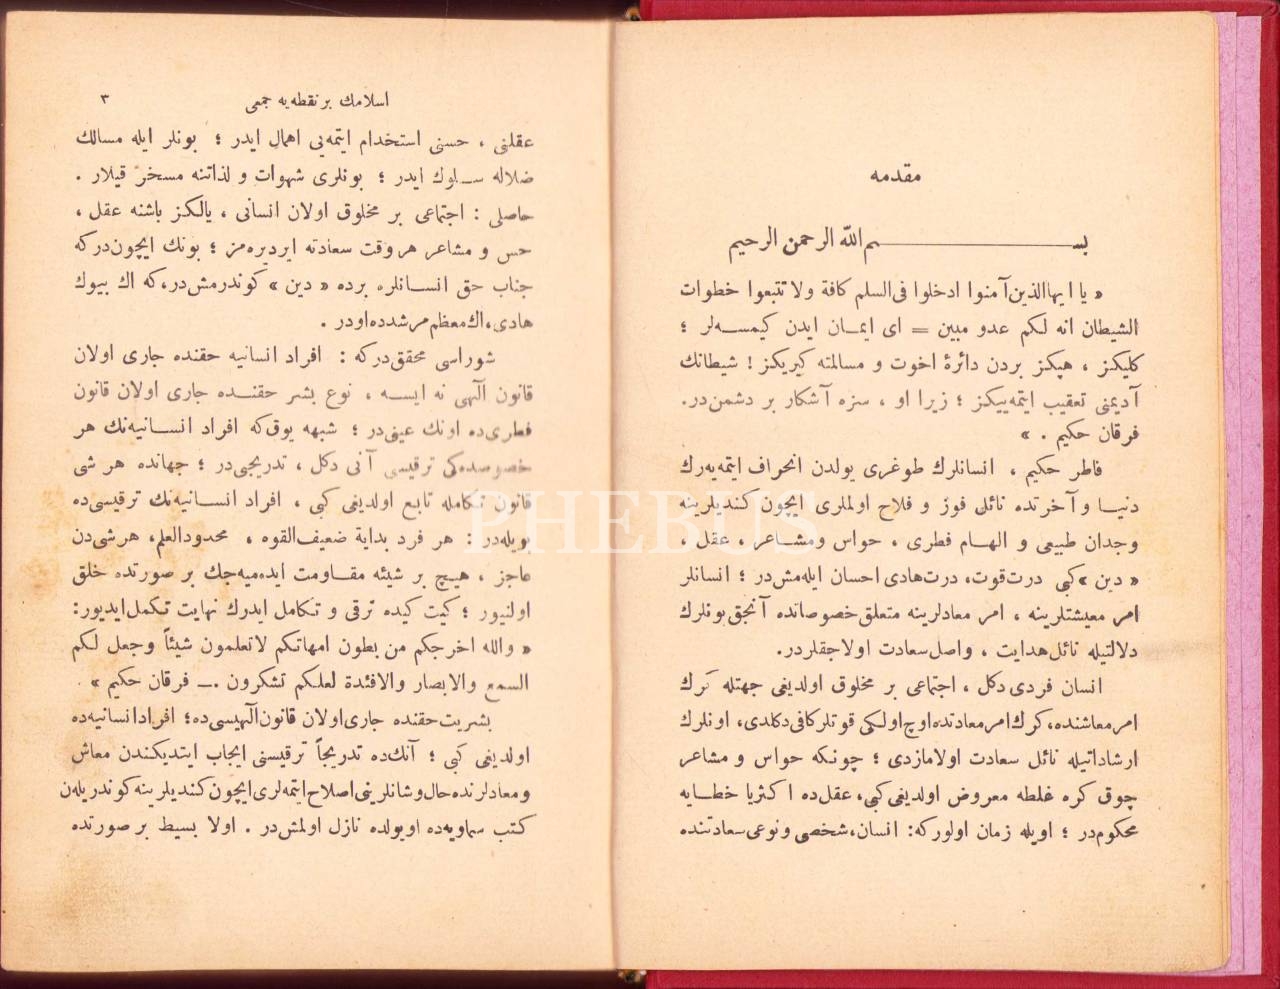 مقدمه
بسم الله الرحمن الرحيم
« يا ايها الذين آمنوا ادخلوا فى السلم كافة ولا تتبعوا خطوات
الشيطان انه لكم عدو مبين = اى ايمان ايدن كيمسه‌لر ؛
كليكز ، هپكز بردن دائرهٔ اخوت و مسالمته كيريكز ! شيطانك
آديمنى تعقيب ايتمه‌ييكز ؛ زيرا او ، سزه آشكار بر دشمن‌در.
فرقان حكيم . »
فاطر حكيم ، انسانلرك طوغرى يولدن انحراف ايتمه‌يه‌رك
دنيا و آخرتده نائل فوز و فلاح اولملرى ايچون كنديلرينه
وجدان طبيعى و الهام فطرى ، حواس و مشاعر ، عقل ،
« دين » كبى درت قوت، درت هادى احسان ايله‌مش‌در ؛ انسانلر
امر معيشتلرينه ، امر معادلرينه متعلق خصوصاتده آنجق بونلرك
دلالتيله نائل هدايت ، واصل سعادت اولاجقلردر.
انسان فردى دكل ، اجتماعى بر مخلوق اولديغى جهتله كرك
امر معاشنده، كرك امر معادتده اوچ اولكى قوتلر كافى دكلدى، اونلرك
ارشاداتيله نائل سعادت اولامازدى ؛ چونكه حواس و مشاعر
چوق كره غلطه معروض اولديغى كبى، عقل‌ده اكثريا خطايه
محكوم‌در ؛ اويله زمان اولور كه: انسان، شخصى و نوعى سعادتنده
اسلامك بر نقطه‌يه جمعى ٣
عقلنى ، حسنى استخدام ايتمه‌يى اهمال ايدر ؛ بونلر ايله مسالك
ضلاله سلوك ايدر ؛ بونلرى شهوات و لذاتنه مسخر قيلار .
حاصلى : اجتماعى بر مخلوق اولان انسانى ، يالكز باشنه عقل ،
حس و مشاعر هر وقت سعادته ايرديره‌مز ؛ بونك ايچون‌در كه
جناب حق انسانلره برده « دين » كوندرمش‌در، كه اك بيوك
هادى، اك معظم مرشدده اودر .
شوراسى محقق‌در كه : افراد انسانيه حقنده جارى اولان
قانون آلهى نه ايسه ، نوع بشر حقنده جارى اولان قانون
فطرى‌ده اونك عينى‌در ؛ شبهه يوق كه افراد انسانيه‌نك هر
خصوصده‌كى ترقيسى آنى دكل ، تدريجى‌در ؛ جهانده هر شى
قانون تكامله تابع اولديغى كبى ، افراد انسانيه‌نك ترقيسى‌ده
بويله‌در : هر فرد بداية ضعيف القوه ، محدود العلم، هر شى‌دن
عاجز ، هيچ بر شيئه مقاومت ايده‌ميه‌جك بر صورتده خلق
اولنيور ؛ كيت كيده ترقى و تكامل ايدرك نهايت تكمل ايديور:
« والله اخرجكم من بطون امهاتكم لا تعلمون شيئاً وجعل لكم
السمع والابصار والافئدة لعلكم تشكرون — فرقان حكيم » .
بشريت حقنده جارى اولان قانون آلهيسى‌ده؛ افراد انسانيه‌ده
اولديغى كبى ؛ آنك‌ده تدريجاً ترقيسنى ايجاب ايتديكندن معاش
و معادلرنده حال و شانلرينى اصلاح ايتمه‌لرى ايچون كنديلرينه كوندريله‌ن
كتب سماويه‌ده او يولده نازل اولمش‌در . اولا بسيط بر صورتده
PHEBUS